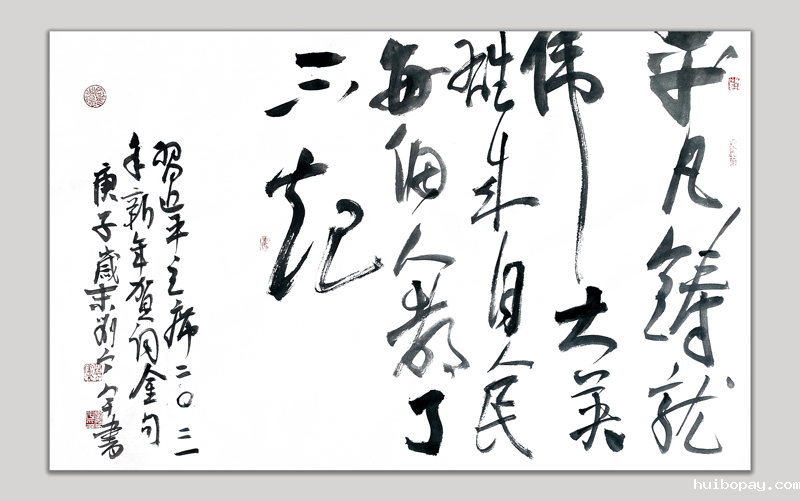 平凡铸就
伟大英
雄来自人民
每個人都了
不起
習近平主席二〇二一
年新年贺词金句
庚子歲末劉書
huibopay.com